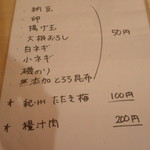 納豆
卵
揚げ玉
大根おろし
白ネギ
小ネギ
磯のり
無添加とろろ昆布
50円
* 紀州 たたき梅 100円
* 糧汁肉 200円